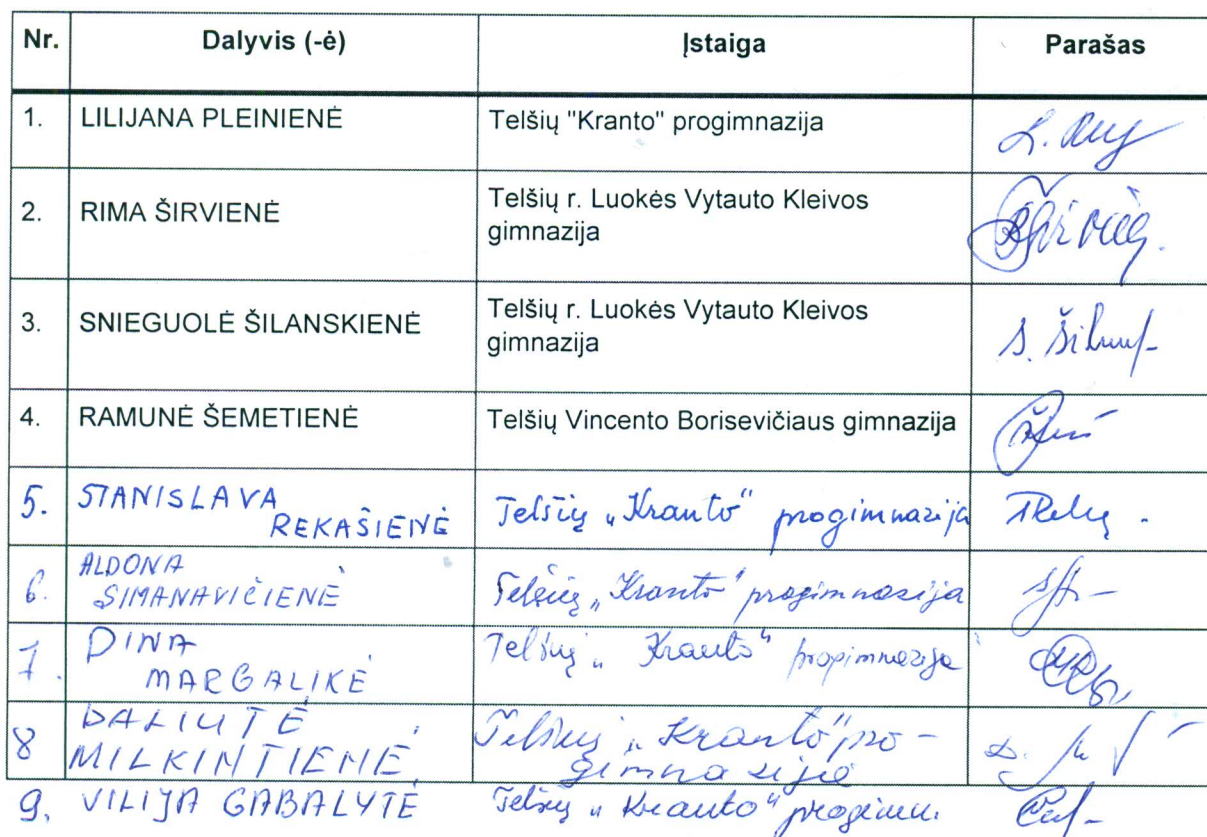 Nr. Dalyvis (-ė) Įstaiga Parašas
1. LILIJANA PLEINIENĖ Telšių "Kranto" progimnazija
2. RIMA ŠIRVIENĖ Telšių r. Luokės Vytauto Kleivos
gimnazija
3. SNIEGUOLĖ ŠILANSKIENĖ Telšių r. Luokės Vytauto Kleivos
gimnazija
4. RAMUNĖ ŠEMETIENĖ Telšių Vincento Borisevičiaus gimnazija
5. STANISLAVA
REKAŠIENĖ Telšių „Kranto" progimnazija
6. ALDONA
SIMANAVIČIENĖ Telšių „Kranto" progimnazija
7. DINA
MARGALIKĖ Telšių „Kranto" progimnazija
8 DALIUTĖ Telšių „Kranto" pro-
MILKINTIENĖ gimnazija
9. VILIJA GABALYTĖ Telšių „Kranto" progimn.